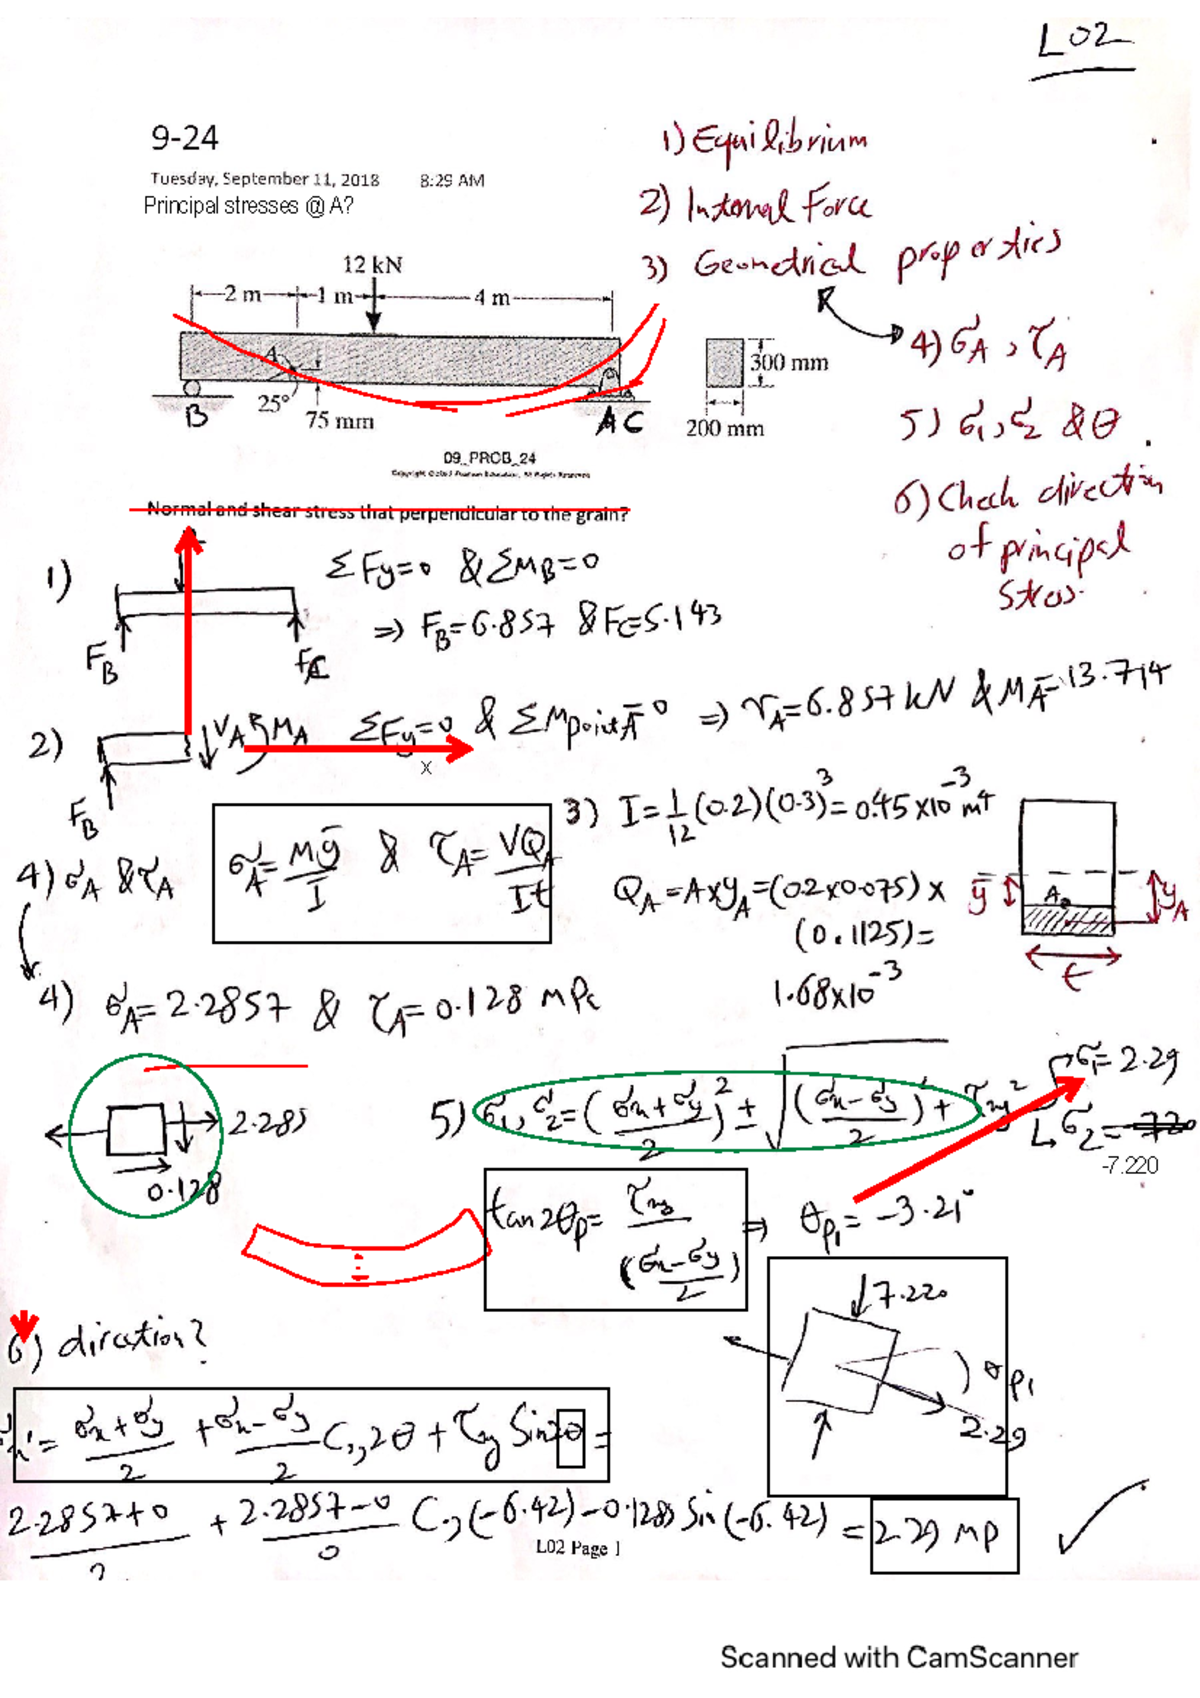 L02
9-24
Tuesday, September 11, 2018 8:29 AM
Principal stresses @ A?
1) Equilibrium
2) Internal Force
3) Geometrical properties
4) σA, τA
5) σ1, σ2 & θ
6) Check direction
of principal
stress.
12 kN
2 m 1 m 4 m
A
25°
75 mm
B
A C
300 mm
200 mm
09_PROB_24
Normal and shear stress that perpendicular to the grain?
1)
FB
FC
ΣFy=0 & ΣMB=0
⇒ FB=6.857 & FC=5.143
2)
FB
VA MA
ΣFy=0 & ΣMpoint A=0 ⇒ VA=6.857 kN & MA=13.714
x
3) I=1/12 (0.2)(0.3)^3=0.45×10^-3 m4
QA=A×yA=(0.2×0.075)×
(0.1125)=
1.68×10^-3
ȳ A yA
t
4) σA & τA
σA=Mȳ/I & τA=VQA/It
4) σA=2.2857 & τA=0.128 MPa
2.285
0.128
5) σ1, σ2=(σx+σy/2)^2 ± √(σx-σy/2)^2+τxy^2
σ1=2.29
σ2=
-7.220
tan2θp=τxy/(σx-σy/2) ⇒ θp1=-3.21°
7.220
θp1
2.29
6) direction?
σx'=σx+σy/2+σx-σy/2 Cos2θ+τxy Sin2θ=
2.2857+0/2+2.2857-0/0 Cos(-6.42)-0.1285 Sin(-6.42)=2.29 MP
L02 Page 1
Scanned with CamScanner